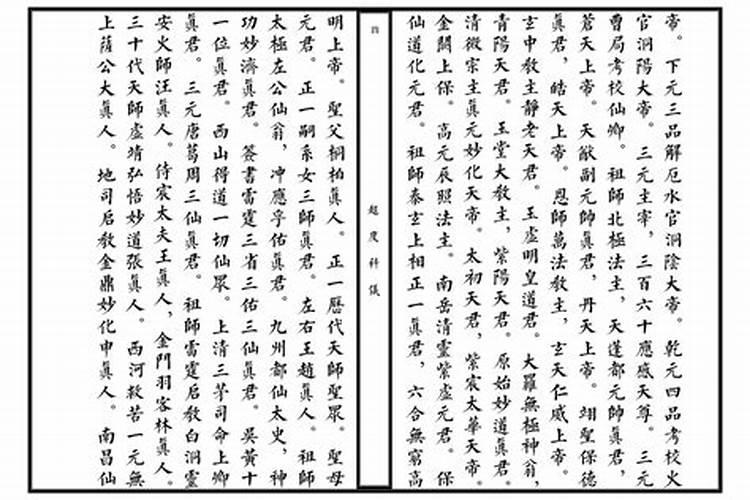 帝。下元三品解厄水官洞陰大帝。乾元四品考校火
官洞陽大帝。三元主宰，三百六十應感天尊。三元
曹局考校仙卿。祖師北極法主，天蓬都元帥眞君，
蒼天上帝。天猷副元帥眞君，丹天上帝。翊聖保德
眞君，皓天上帝。恩師萬法教主，玄天仁威上帝。
玄中教主靜老天君。玉虛明皇道君。大羅無極神翁，
青陽天君。玉堂大教主，紫陽天君。原始妙道眞君。
清微宗主眞元妙化天帝。太初天君，紫宸太華天帝。
金闕上保。高元辰照法主。南岳清靈紫虛元君。保
仙道化元君。祖師泰玄上相正一眞君，六合無窮高
四
超度科儀
明上帝。聖父桐柏眞人。正一曆代天師聖眾。聖母
元君。正一嗣系女三師眞君。左右王趙眞人。祖師
太極左公仙翁，冲應孚佑眞君。九州都仙太史，神
功妙濟眞君。簽書雷霆三省三佑三仙眞君。吳黃十
一位眞君。西山得道一切仙眾。上清三茅司命上卿
眞君。三元唐葛周三仙眞君。祖師雷霆启教白洞靈
安火師汪眞人。侍宸太夫王眞人，金門羽客林眞人。
三十代天師虛靖弘悟妙道張眞人。西河救苦一元無
上薩公大眞人。地司启教金鼎妙化申眞人。南昌仙